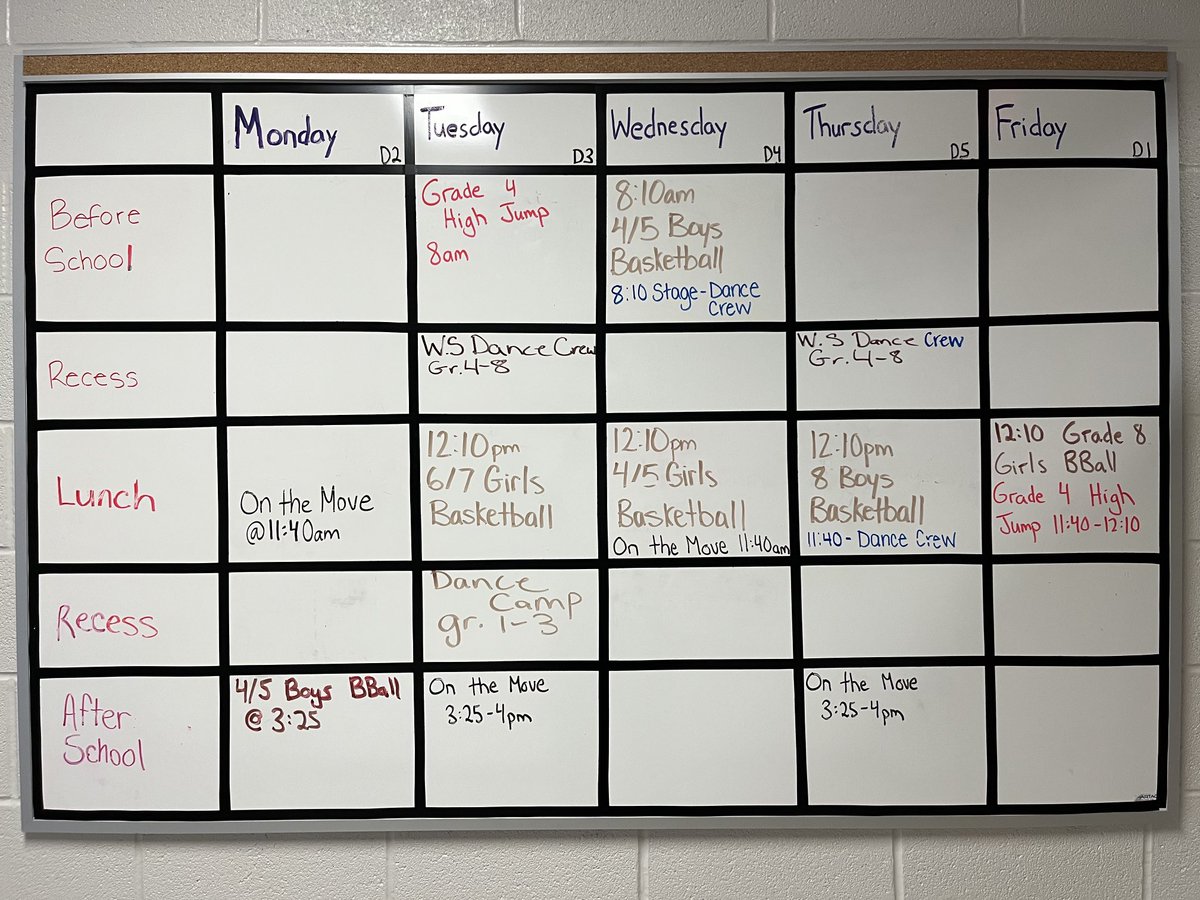 Monday D2
Tuesday D3
Wednesday D4
Thursday D5
Friday D1
Before
School
Grade 4
High Jump
8am
8:10am
4/5 Boys
Basketball
8:10 Stage-Dance
Crew
Recess
W.S Dance Crew
Gr.4-8
W.S Dance Crew
Gr. 4-8
Lunch
On the Move
@11:40am
12:10pm
6/7 Girls
Basketball
12:10pm
4/5 Girls
Basketball
On the Move 11:40am
12:10pm
8 Boys
Basketball
11:40- Dance Crew
12:10 Grade 8
Girls BBall
Grade 4 High
Jump 11:40-12:10
Recess
Dance
Camp
gr. 1-3
After
School
4/5 Boys BBall
@ 3:25
On the Move
3:25-4pm
On the Move
3:25-4pm